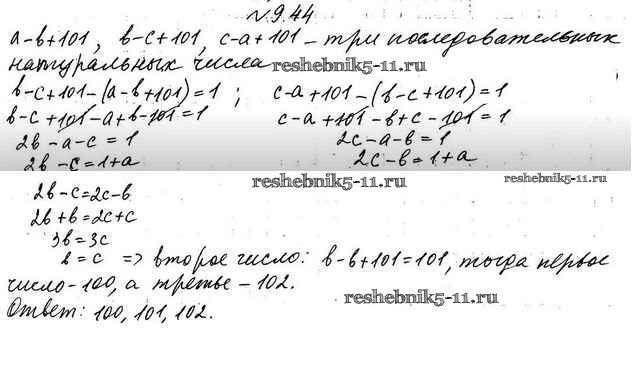 №9.44
a-b+101, b-c+101, c-a+101 - три последовательных
натуральных числа reshebnik5-11.ru
b-c+101-(a-b+101)=1; c-a+101-(b-c+101)=1
b-c+101-a+b-101=1 c-a+101-b+c-101=1
2b-a-c=1 2c-a-b=1
2b-c=1+a 2c-b=1+a
reshebnik5-11.ru reshebnik5-11.ru
2b-c=2c-b
2b+b=2c+c
3b=3c
b=c => второе число: b-b+101=101, тогда первое
число-100, а третье-102.
reshebnik5-11.ru
Ответ: 100, 101, 102.